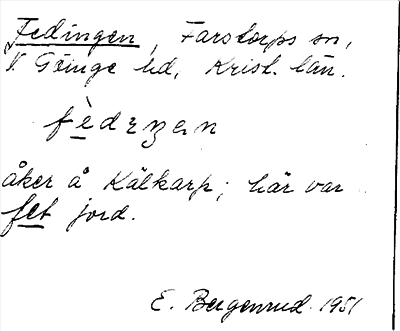 Fedingen, Farstorps sn,
V. Göinge hd, Krist. län.
fèdɪŋən
åker å Kälkarp; här var
fet jord.
E. Bergenrud. 1951